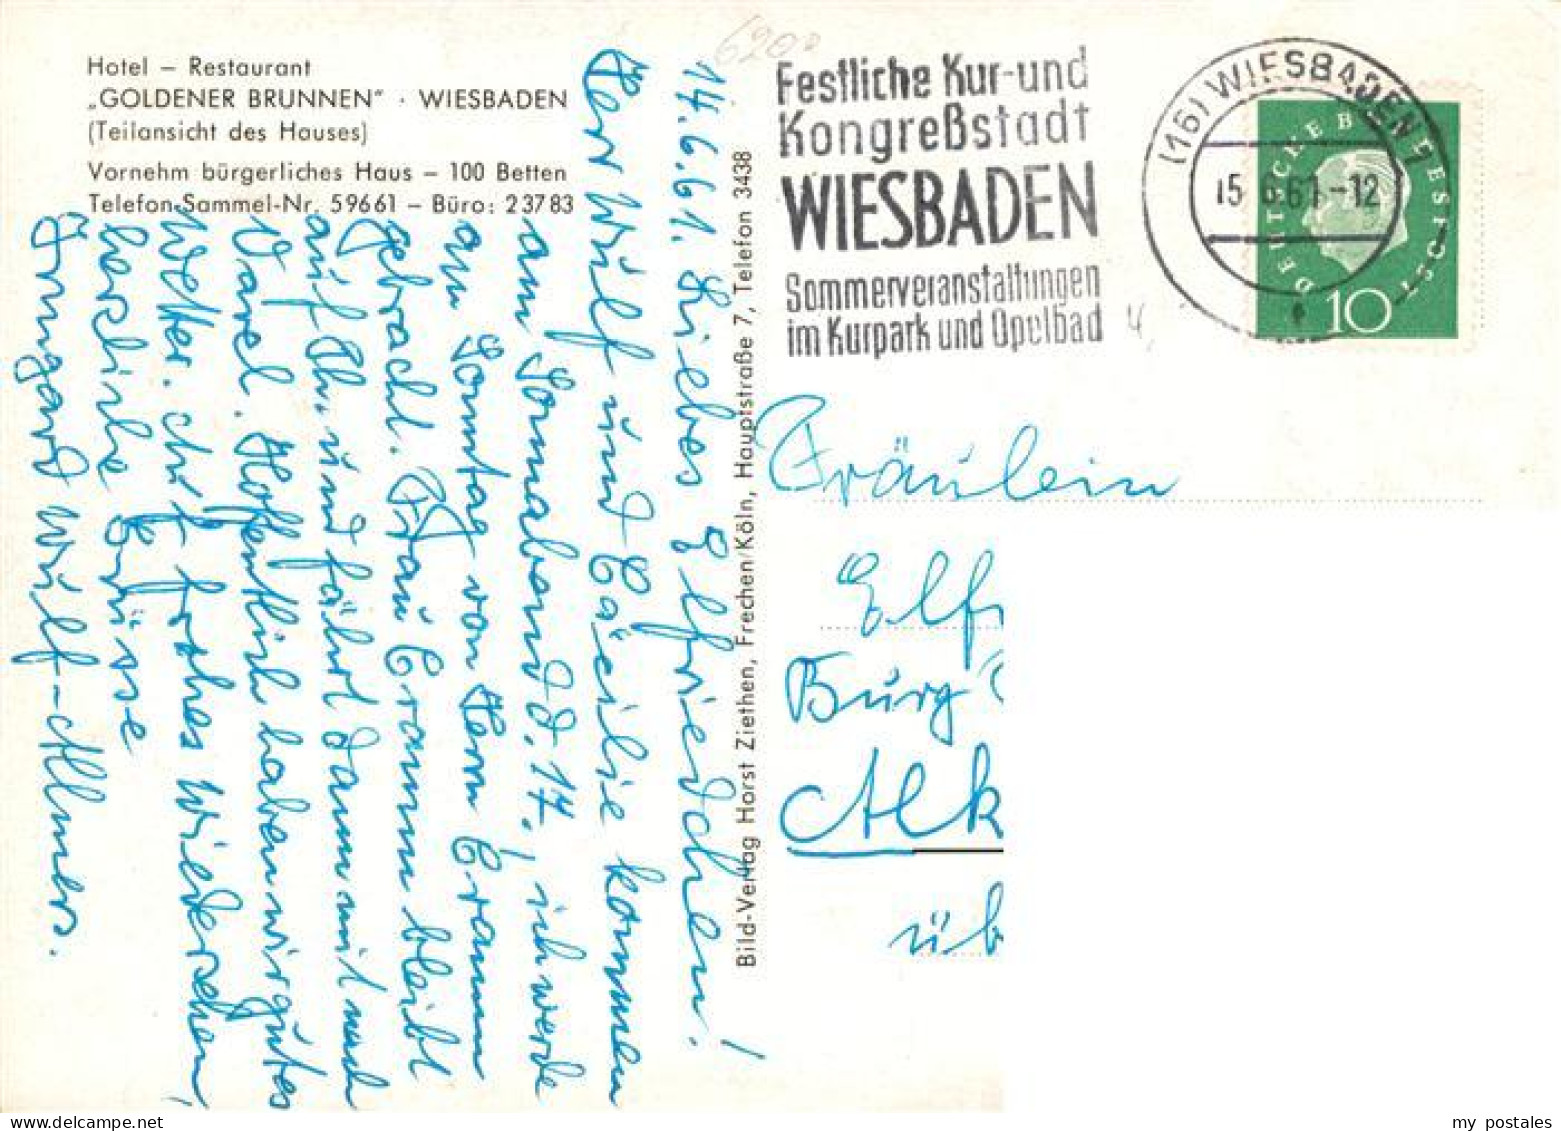 Hotel – Restaurant
„GOLDENER BRUNNEN" · WIESBADEN
(Teilansicht des Hauses)
Vornehm bürgerliches Haus – 100 Betten
Telefon-Sammel-Nr. 59661 – Büro: 23783
14.6.61. Liebes Elfriedchen!
Herr Wulf und Cäcilie kommen
am Sonnabend d. 17., ich werde
am Sonntag von Herrn Cramm
gebracht. Frau Cramm bleibt
auf Ih. und fährt dann mit nach
Varel. Hoffentlich haben wir gutes
Wetter. Auf frohes Wiedersehen,
herzliche Grüsse
Irmgard Wulf-Allmers.
Bild-Verlag Horst Ziethen, Frechen/Köln, Hauptstraße 7, Telefon 3438
6200
Festliche Kur- und
Kongreßstadt
WIESBADEN
Sommerveranstaltungen
im Kurpark und Opelbad
(16) WIESBADEN 1
15.6.61-12
DEUTSCHE BUNDESPOST
10
Fräulein
Elfr
Burg
Alk
üb
my postales